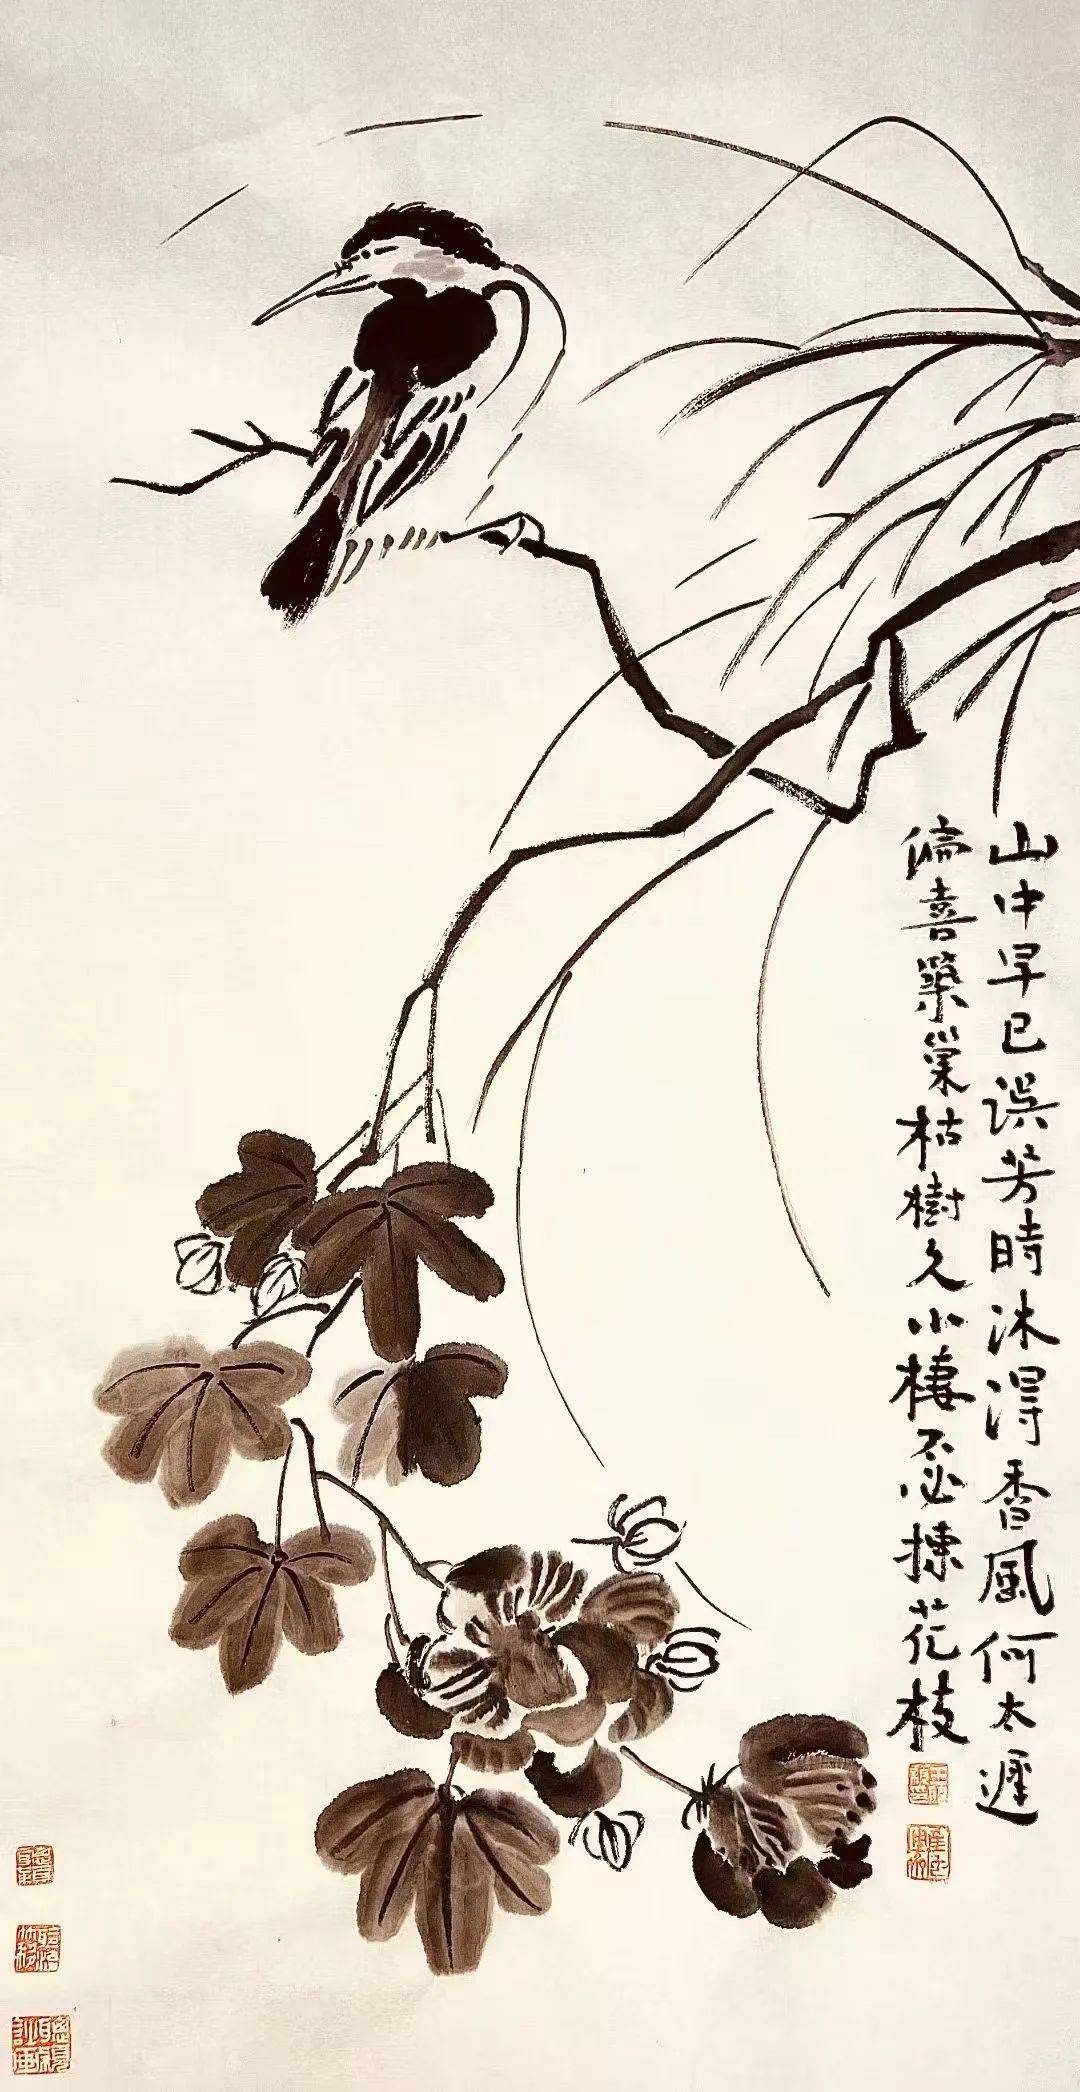 山中早已误芳時沐得香風何太遲
偏喜築巢枯樹久小棲不必揀花枝